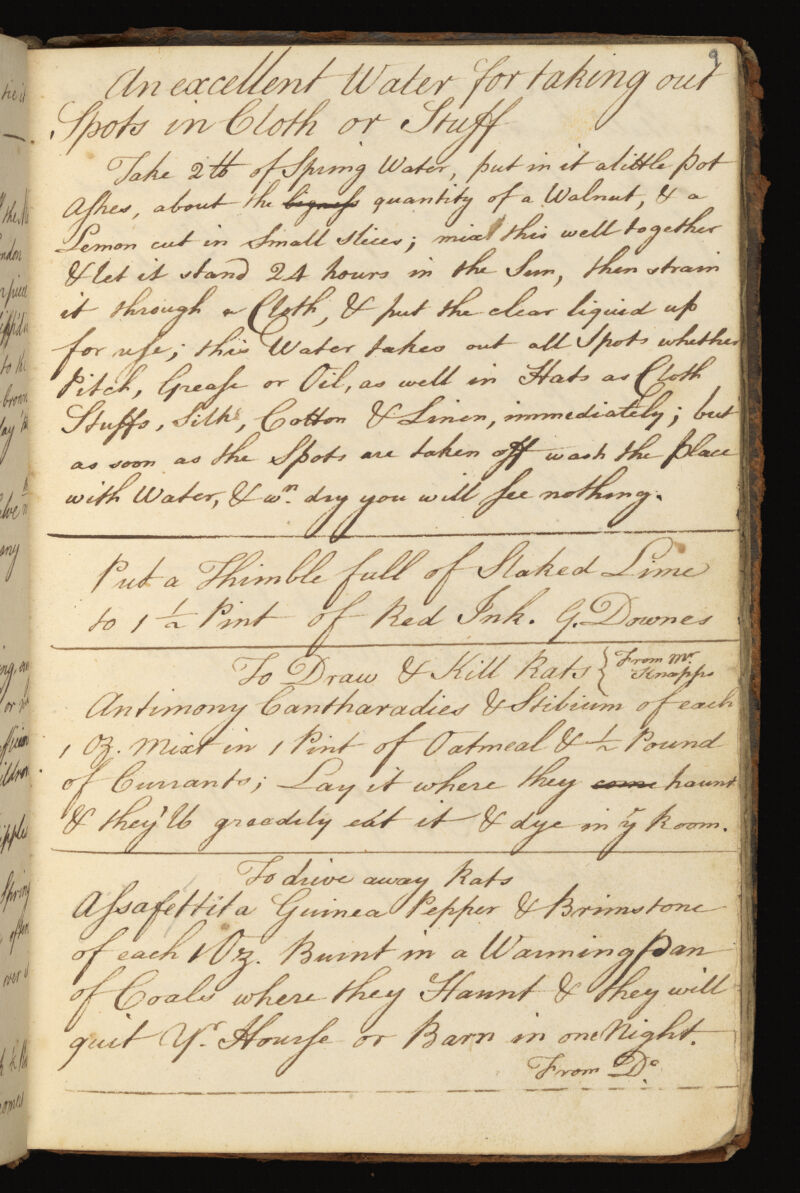 9
An excellent Water for taking out
Spots in Cloth or Stuff
Take 2 ℔ of Spring Water, put in it a little pot
Ashes, about the bigness quantity of a Walnut, & a
Lemon cut in Small slices; mix this well together
& let it stand 24 hours in the Sun, then strain
it through a Cloth, & put the clear liquid up
for use; this Water takes out all Spots whether
Pitch, Grease or Oil, as well in Hats as Cloth
Stuffs, Silks, Cotton & Linen, immediately; but
as soon as the Spots are taken off wash the place
with Water, & wn. dry you will see nothing.
Put a Thimble full of Slaked Lime
to 1 ½ Pint of Red Ink. G. Downes
To Draw & Kill Rats { From Mr.
Knapps
Antimony Cantharadies & Stibium of each
1 Oz. mixt in 1 Pint of Oatmeal & ½ Pound
of Currants; Lay it where they come haunt
& they'll greadily eat it & dye in ye Room.
To drive away Rats
Assafettita Guinea Pepper & Brimstone
of each 1 Oz. Burnt in a Warming Pan
of Coals where they Haunt & they will
quit Yr. Hourse or Barn in one Night.
From Do.